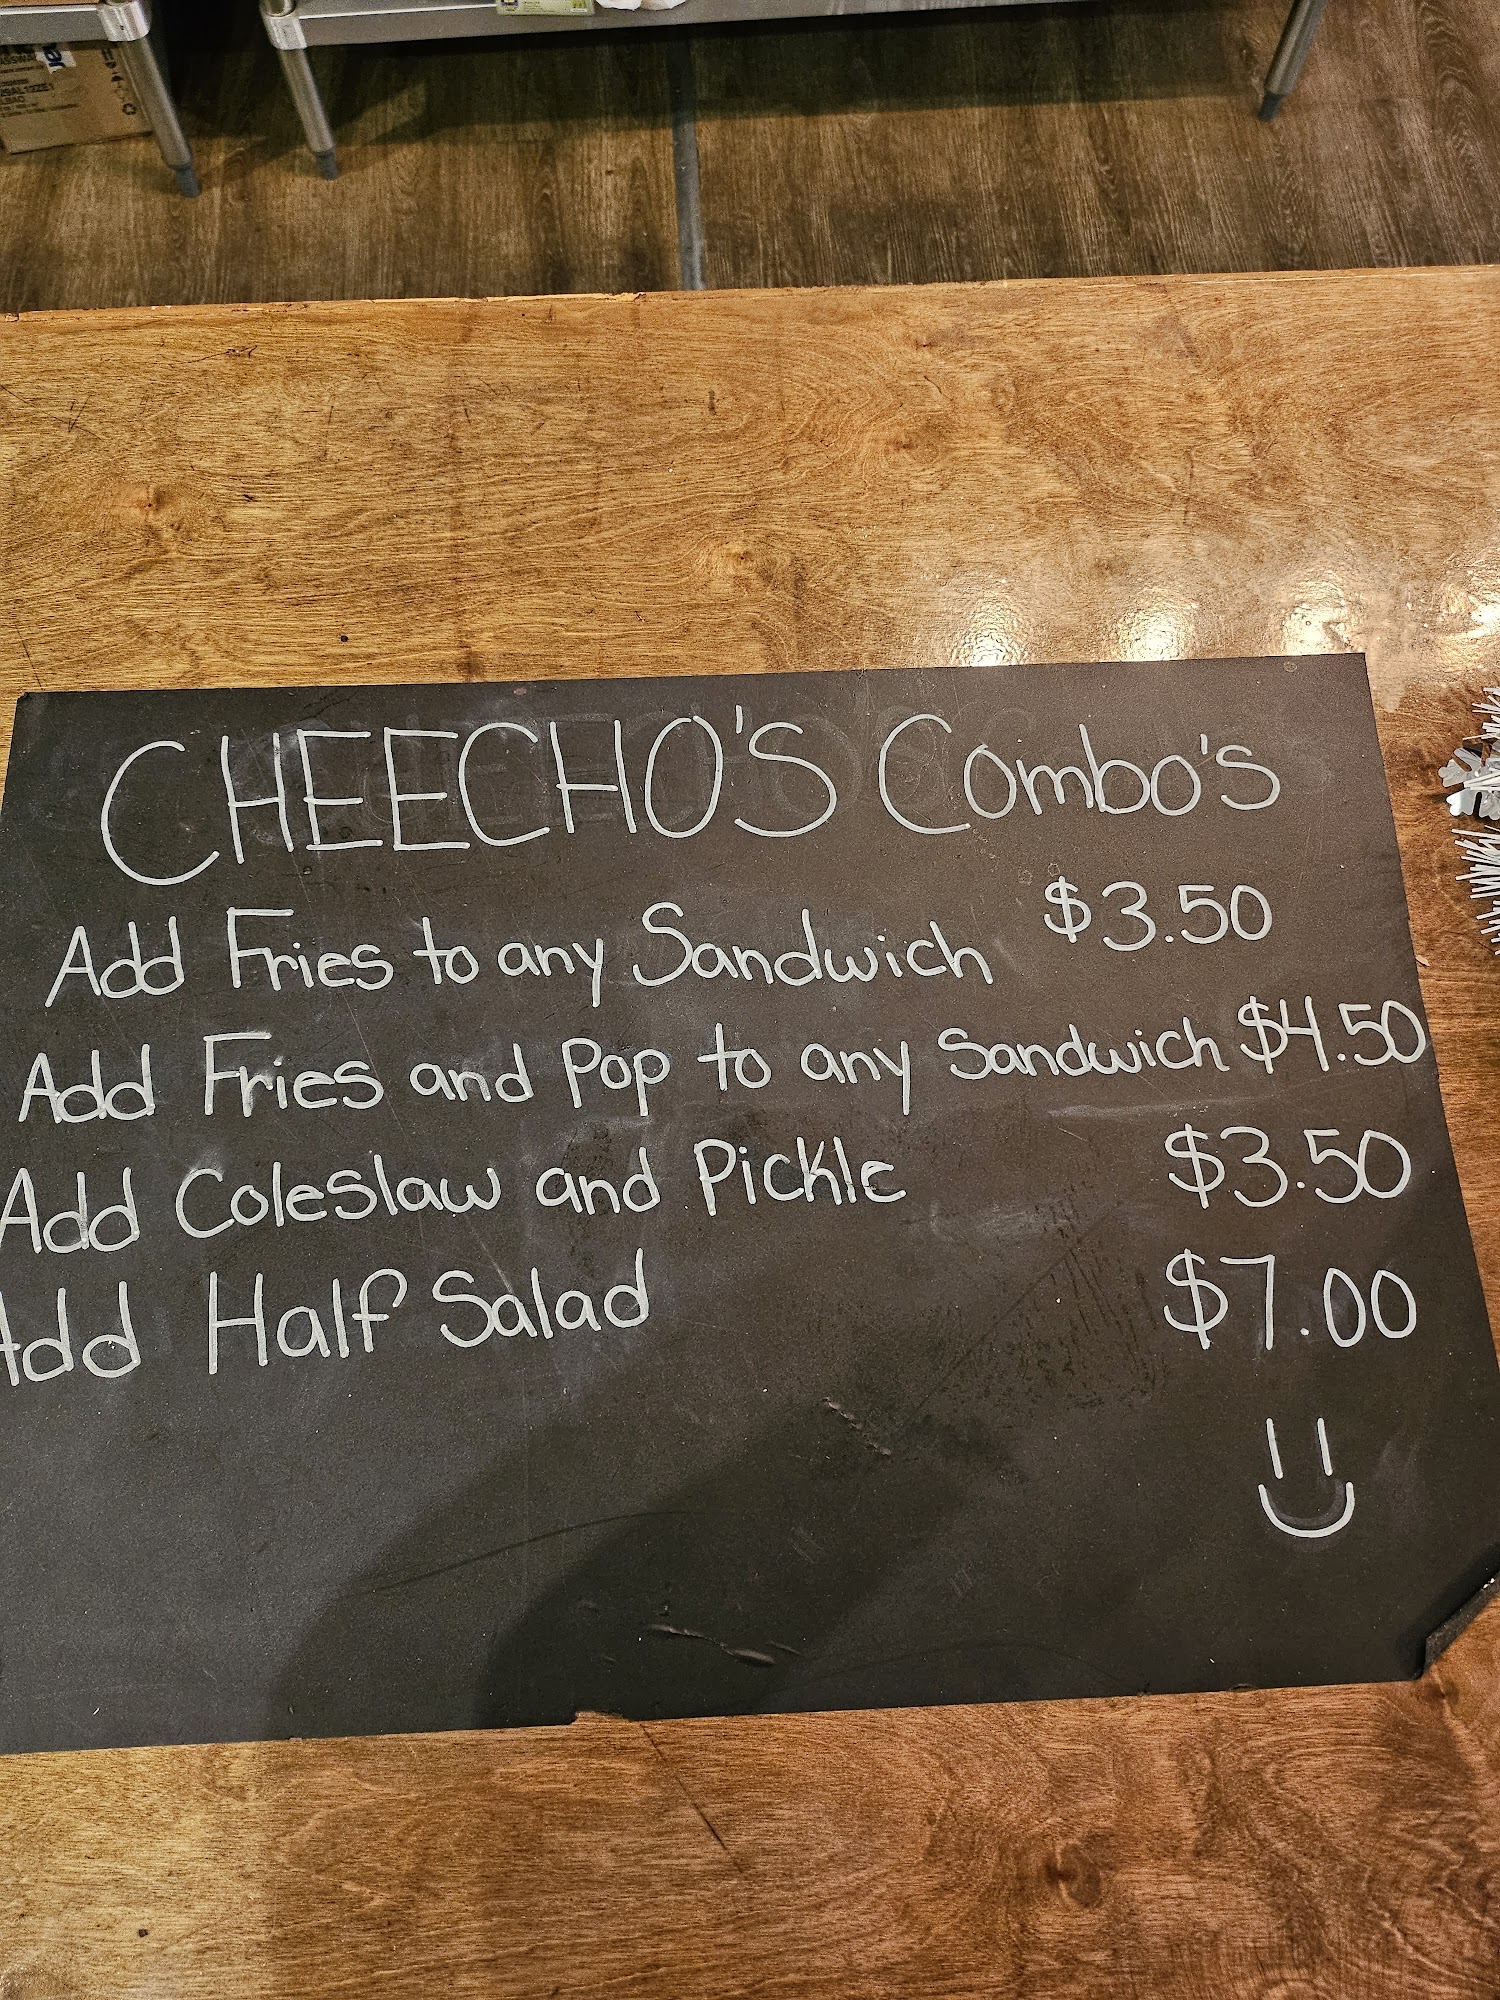 CHEECHO'S Combo's
Add Fries to any Sandwich $3.50
Add Fries and Pop to any Sandwich $4.50
Add Coleslaw and Pickle $3.50
Add Half Salad $7.00